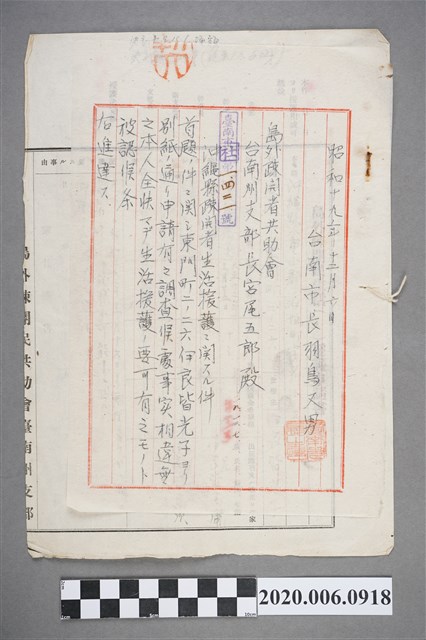 昭和十九年十二月 日
台南市長羽鳥又男
島外疎開者共助會
台南州支部長宮尾五郎殿
臺南市社第一四二一號
沖繩縣疎開者生活援護ニ関スル件
首題ノ件ニ関シ東門町二ノ二六伊良皆光子ヨリ
別紙ノ通リ申請有之調査候處事実相違無
之本人全快マデ生活援護ノ要可有之モノト
被認候条
右進達ス
由事
島外疎開民共助會臺南州支部
2020.006.0918